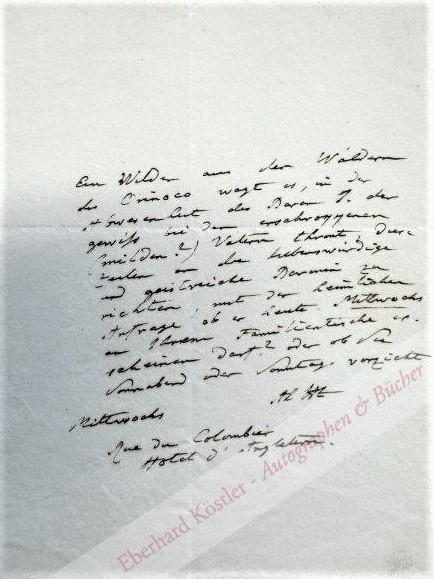 Ein Wilder aus den Wäldern
des Orinoco wagt es, in der
Abwesenheit des Baron J. der
gewiss bei den erschroggenen
(milden?) Vätern thront, diese
Zeilen an die liebenswürdige
und geistreiche Baronin zu
richten, mit der
Anfrage ob er heute Mittwochs
an Ihrem Familientische er-
scheinen darf? oder ob Sie
Sonnabend oder Sonntag
Al Ht
Mittwochs
Rue du Colombier
Hotel d'Angleterre.
Eberhard Köstler - Autographen & Bücher